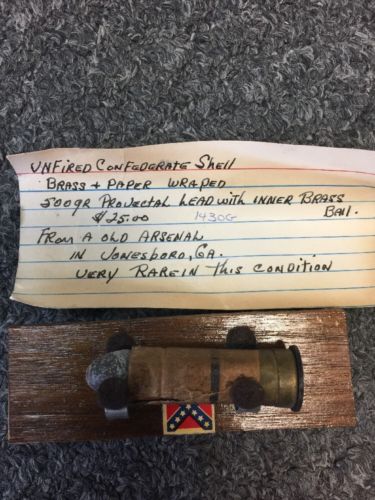 UNFIRED CONFEDERATE Shell
BRASS + PAPER WRAPED
500gr PROJECTAL LEAD with INNER BRASS
$25.00 1430G Ball.
FROM A OLD ARSENAL
IN JONESBORO, GA.
VERY RARE IN This CONDITION